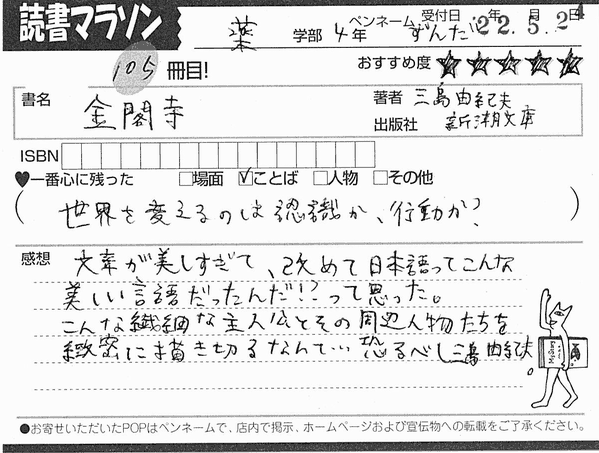 読書マラソン
薬 学部 4年 ペンネーム ずんだ 受付日 '22年 5月 24日
105 冊目! おすすめ度 ★★★★★
書名 金閣寺 著者 三島由紀夫
出版社 新潮文庫
ISBN
♥一番心に残った □場面 ☑ことば □人物 □その他
( 世界を変えるのは認識か、行動か? )
感想 文章が美しすぎて、改めて日本語ってこんな
美しい言語だったんだ!?って思った。
こんな繊細な主人公とその周辺人物たちを
緻密に描き切るなんて…恐るべし三島由紀夫。
●お寄せいただいたPOPはペンネームで、店内で掲示、ホームページおよび宣伝物への転載をご了承ください。